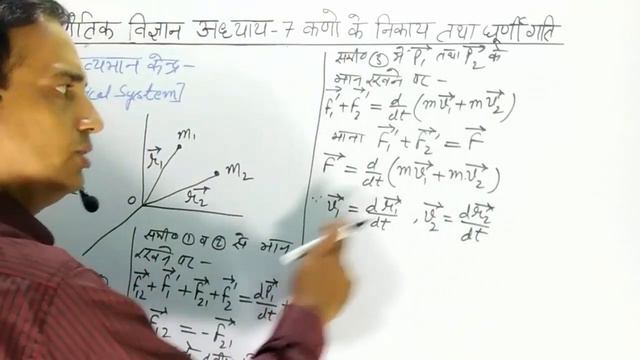 भौतिक विज्ञान अध्याय-7 कणो के निकाय तथा घूर्णी गति
व्यमान केन्द्र-
ical System]
m₁
r⃗₁
m₂
r⃗₂
O
समी० ① व ② से मान
रखने पर-
F⃗₁₂+F⃗₁'+F⃗₂₁+F⃗₂' = dP⃗₁/dt +
F⃗₁₂ = -F⃗₂₁
समी० ③ में P⃗₁ तथा P⃗₂ के
मान रखने पर-
F⃗₁'+F⃗₂' = d/dt (mv⃗₁+mv⃗₂)
माना F⃗₁'+F⃗₂' = F⃗
F⃗ = d/dt (mv⃗₁+mv⃗₂)
∵ v⃗₁ = dr⃗₁/dt , v⃗₂ = dr⃗₂/dt